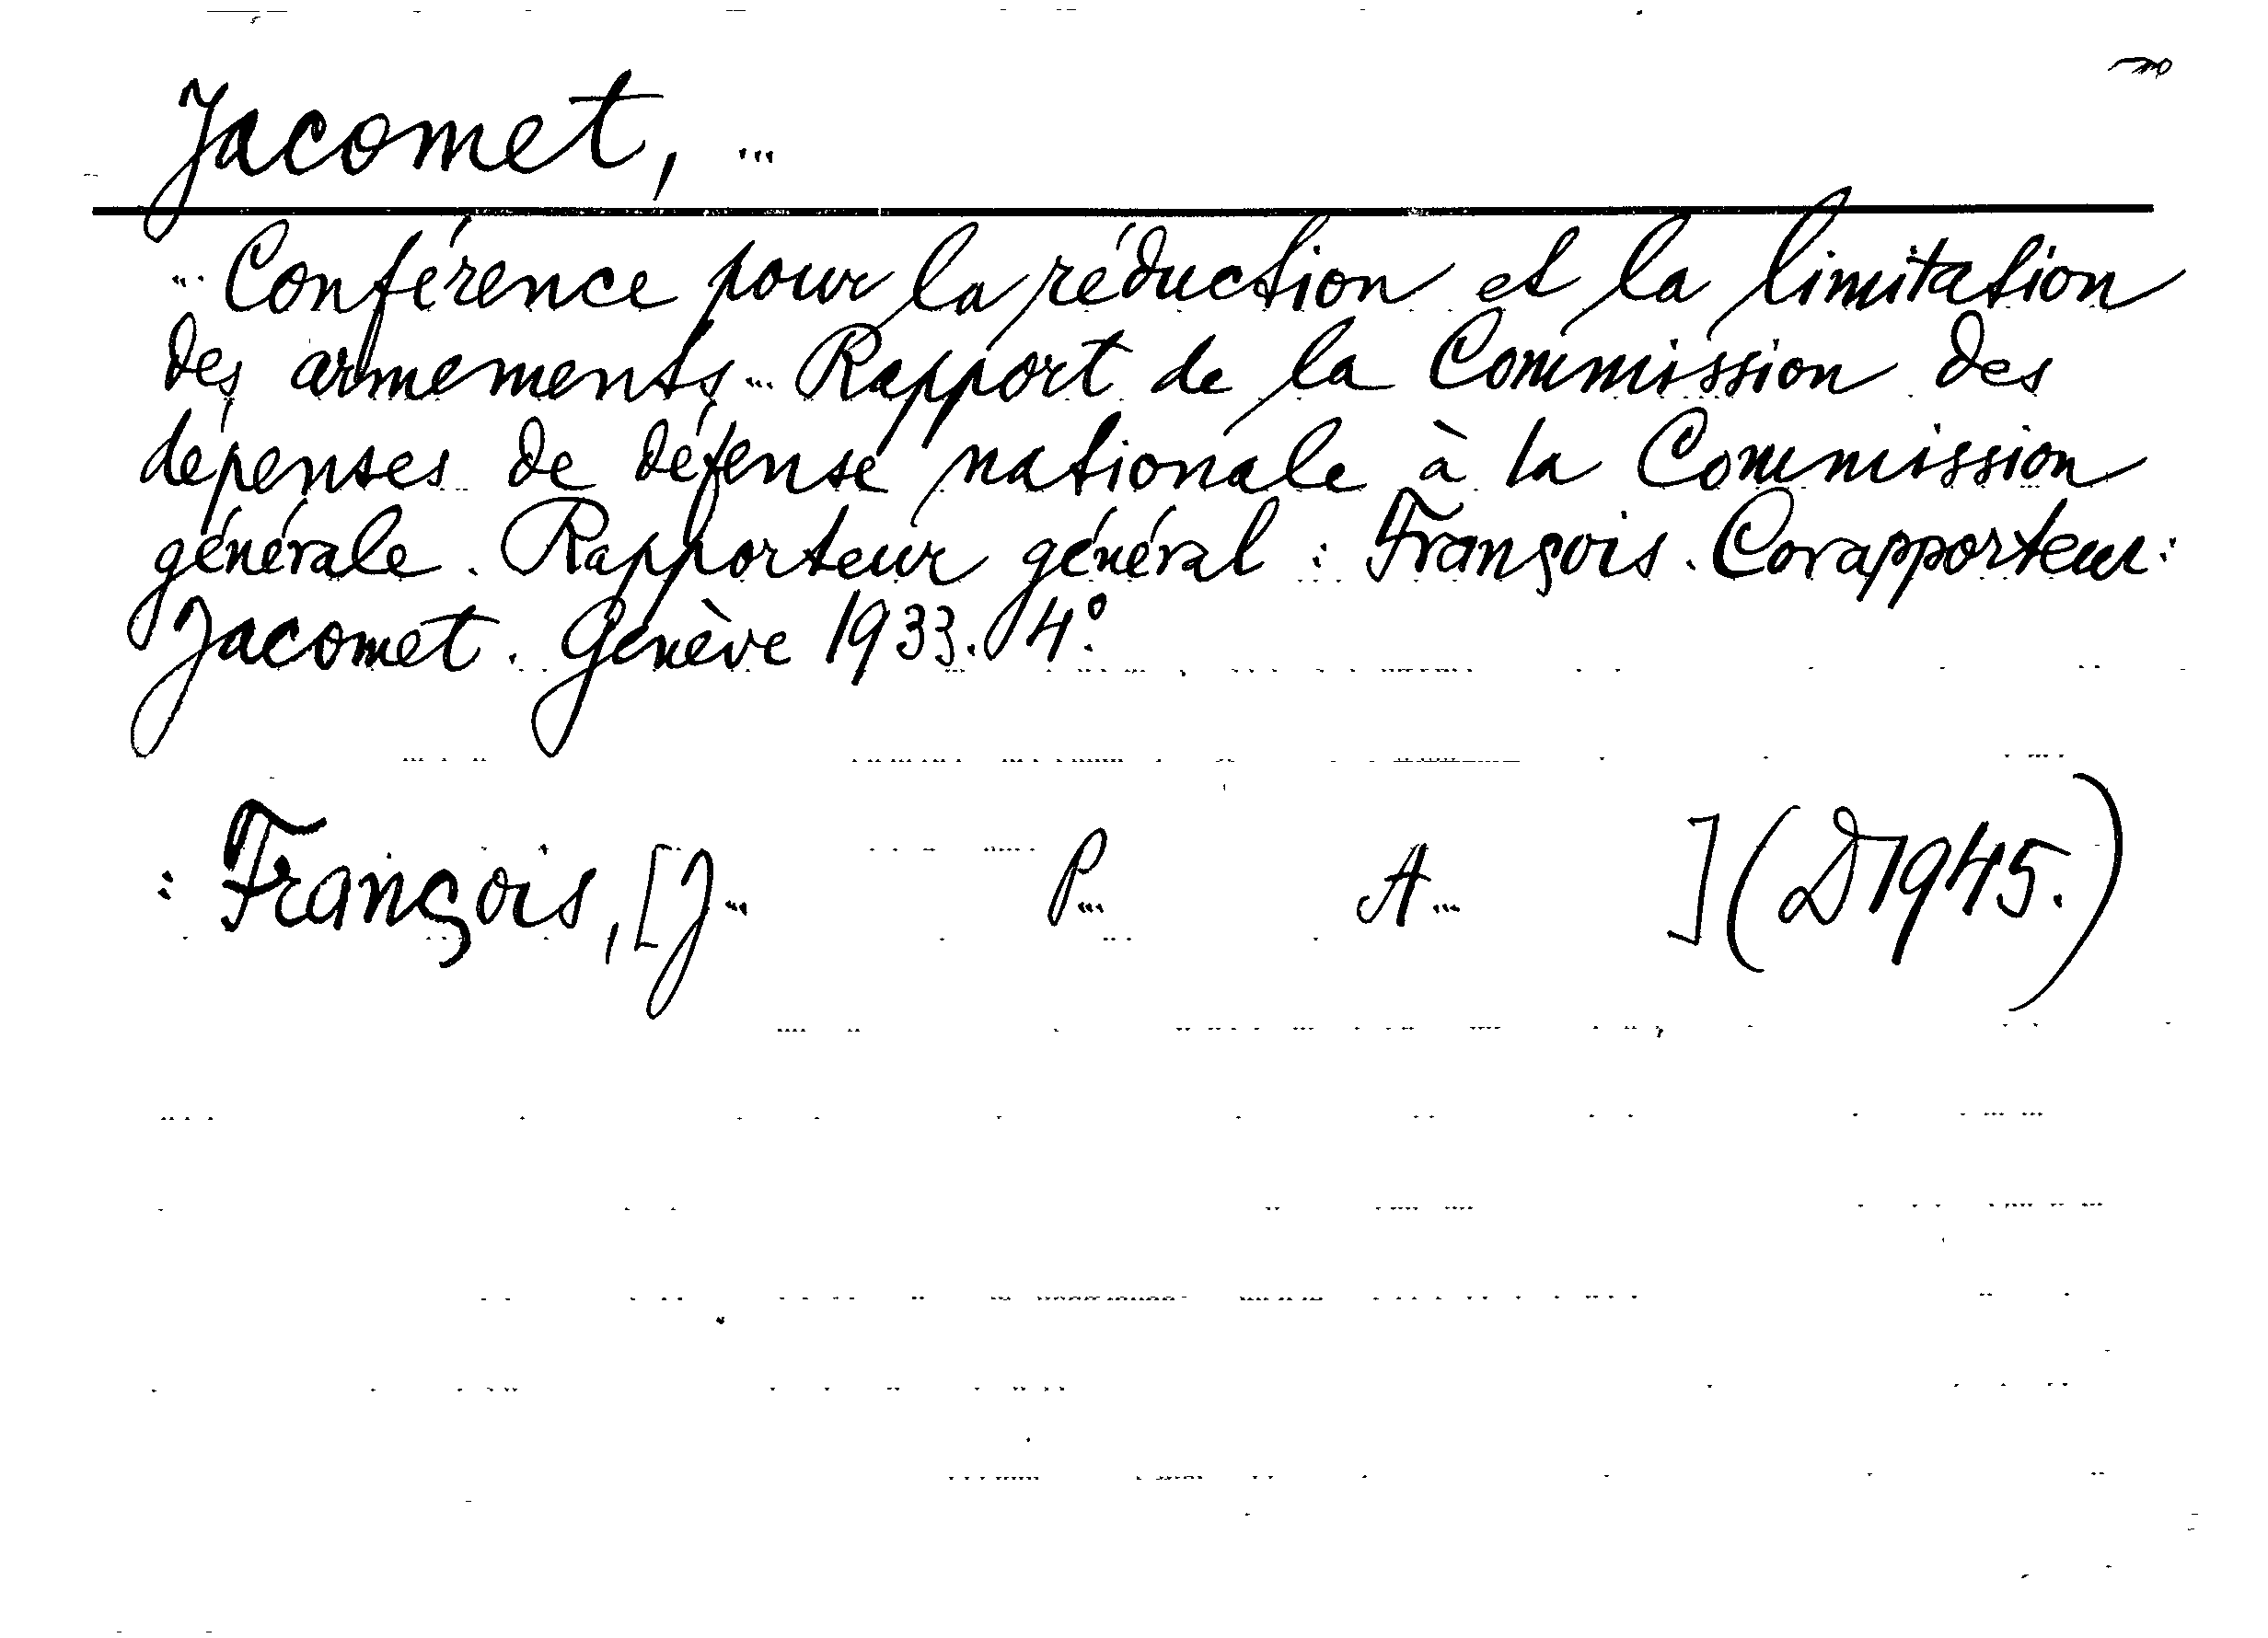 Jacomet, ...
... Conférence pour la réduction et la limitation
des armements ... Rapport de la Commission des
dépenses de défense nationale à la Commission
générale. Rapporteur général : François. Corapporteur:
Jacomet. Genève 1933. 4°.
: François, [J... P... A... ] (D 1945.)